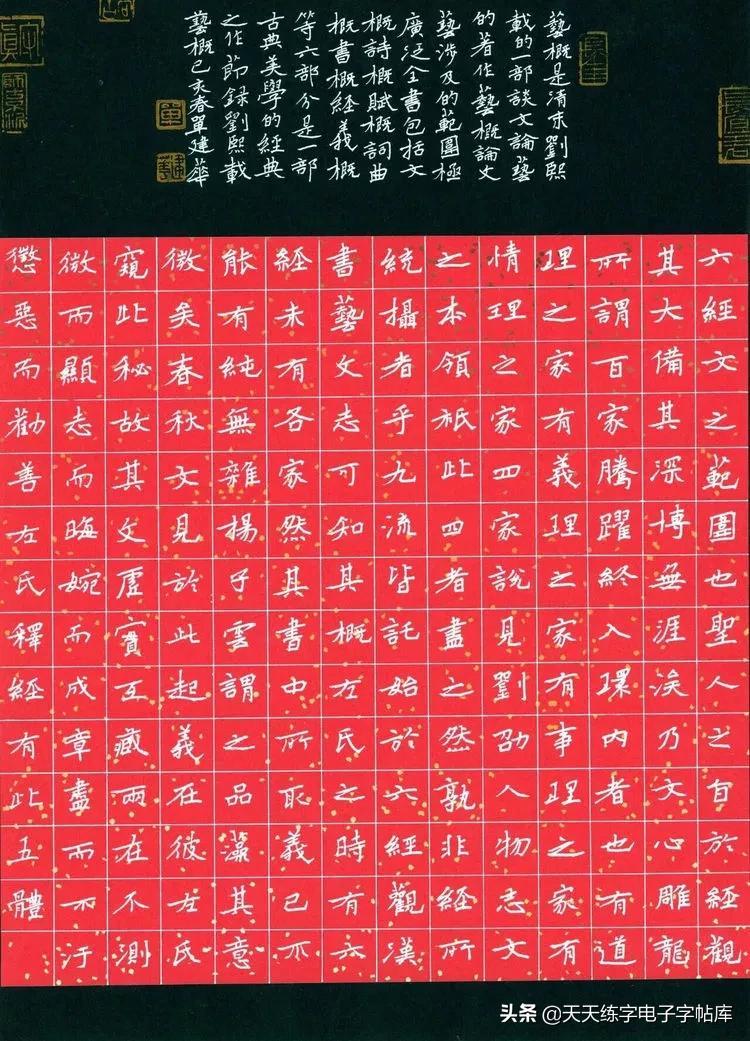 藝概是清末劉熙
載的一部談文論藝
的著作藝概論文
藝涉及的範圍極
廣泛全書包括文
概詩概賦概詞曲
概書概經義概
等六部分是一部
古典美學的經典
之作節録劉熙載
藝概己亥春單建華
六經文之範圍也聖人之旨於經觀
其大備其深博無涯涘乃文心雕龍
所謂百家騰躍終入環內者也有道
理之家有義理之家有事理之家有
情理之家四家說見劉劭人物志文
之本領祇此四者盡之然孰非經所
統攝者乎九流皆託始於六經觀漢
書藝文志可知其概左氏之時有六
經未有各家然其書中所取義已不
能有純無雜揚子雲謂之品藻其意
微矣春秋文見於此起義在彼左氏
窺此秘故其文虛實互藏兩在不測
微而顯志而晦婉而成章盡而不汙
懲惡而勸善左氏釋經有此五體
單
建華
头条 @天天练字电子字帖库